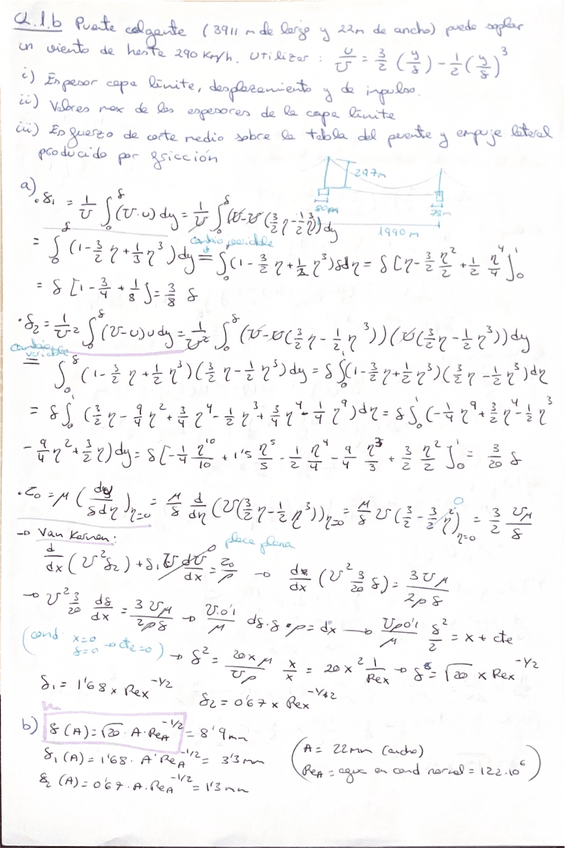 CL.1.b Puente colgante (3911 m de largo y 22m de ancho) puede soplar
un viento de hasta 290 Km/h. Utilizar: u/U = 3/2 (y/δ) - 1/2 (y/δ)³
i) Espesor capa límite, desplazamiento y de impulso.
ii) Valores max de los espesores de la capa límite
iii) Esfuerzo de corte medio sobre la tabla del puente y empuje lateral
producido por fricción
297m
1990m
a) · δ₁ = 1/U ∫₀^δ (U-u)dy = 1/U ∫₀^δ (U-U(3/2 η - 1/2 η³))dy
cambio variable
= ∫₀^δ (1 - 3/2 η + 1/2 η³)dy = ∫₀¹ (1 - 3/2 η + 1/2 η³)δdη = δ[η - 3/2 η²/2 + 1/2 η⁴/4]₀¹
= δ [1 - 3/4 + 1/8] = 3/8 δ
· δ₂ = 1/U² ∫₀^δ (U-u)u dy = 1/U² ∫₀^δ (U-U(3/2 η - 1/2 η³))(U(3/2 η - 1/2 η³))dy
cambio variable
= ∫₀^δ (1 - 3/2 η + 1/2 η³)(3/2 η - 1/2 η³)dy = δ∫₀¹(1 - 3/2 η + 1/2 η³)(3/2 η - 1/2 η³)dη
= δ∫₀¹ (3/2 η - 9/4 η² + 3/4 η⁴ - 1/2 η³ + 3/4 η⁴ - 1/4 η⁹)dη = δ∫₀¹ (-1/4 η⁹ + 3/2 η⁴ - 1/2 η³
- 9/4 η² + 3/2 η)dy = δ[-1/4 η¹⁰/10 + 1'5 η⁵/5 - 1/2 η⁴/4 - 9/4 η³/3 + 3/2 η²/2]₀¹ = 3/20 δ
· τ₀ = μ (du/δdη)η=0 = μ/δ d/dη (U(3/2 η - 1/2 η³))η=0 = μ/δ U(3/2 - 3/2 η²)η=0 = 3/2 Uμ/δ
0
→ Van Karman:
placa plana
d/dx (U²δ₂) + δ₁ U dU/dx = τ₀/ρ → d/dx (U² 3/20 δ) = 3Uμ/2ρδ
→ U² 3/20 dδ/dx = 3Uμ/2ρδ → U·0'1/μ dδ·δ·ρ = dx → Uρ0'1/μ δ²/2 = x + cte
(cond x=0 δ=0 → cte=0) → δ² = 20xμ/Uρ x/x = 20x² 1/Rex → δ = √20 x Rex^-1/2
δ₁ = 1'68 x Rex^-1/2 δ₂ = 0'67 x Rex^-1/2
b) δ(A) = √20 · A · ReA^-1/2 = 8'9mm
δ₁(A) = 1'68 · A · ReA^-1/2 = 3'3mm
δ₂(A) = 0'67 · A · ReA^-1/2 = 1'3mm
(A = 22mm (ancho)
ReA = agua en cond normal = 122·10⁶)